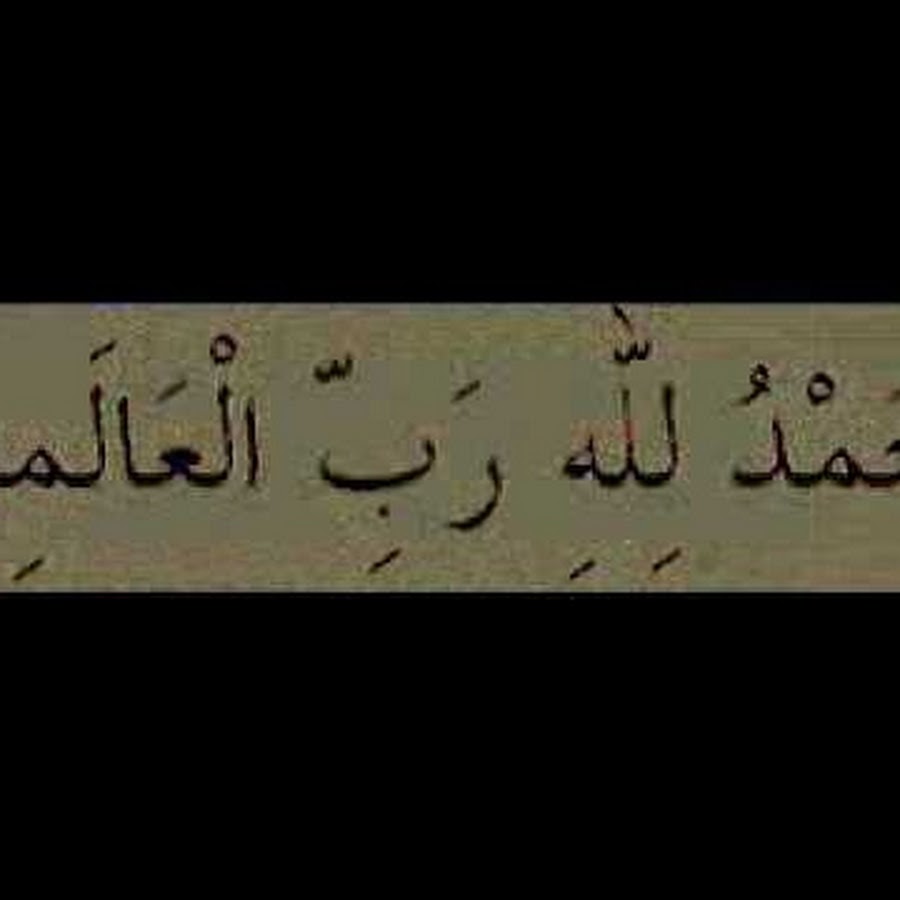 حَمْدُ لِلّٰهِ رَبِّ الْعَالَمِ